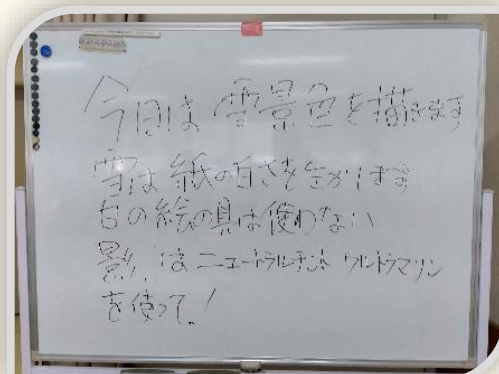 今回は雪景色を描きます
雪は紙の白さを生かします
白の絵の具は使わない
影は ニュートラルチント ウルトラマリン
を使って!